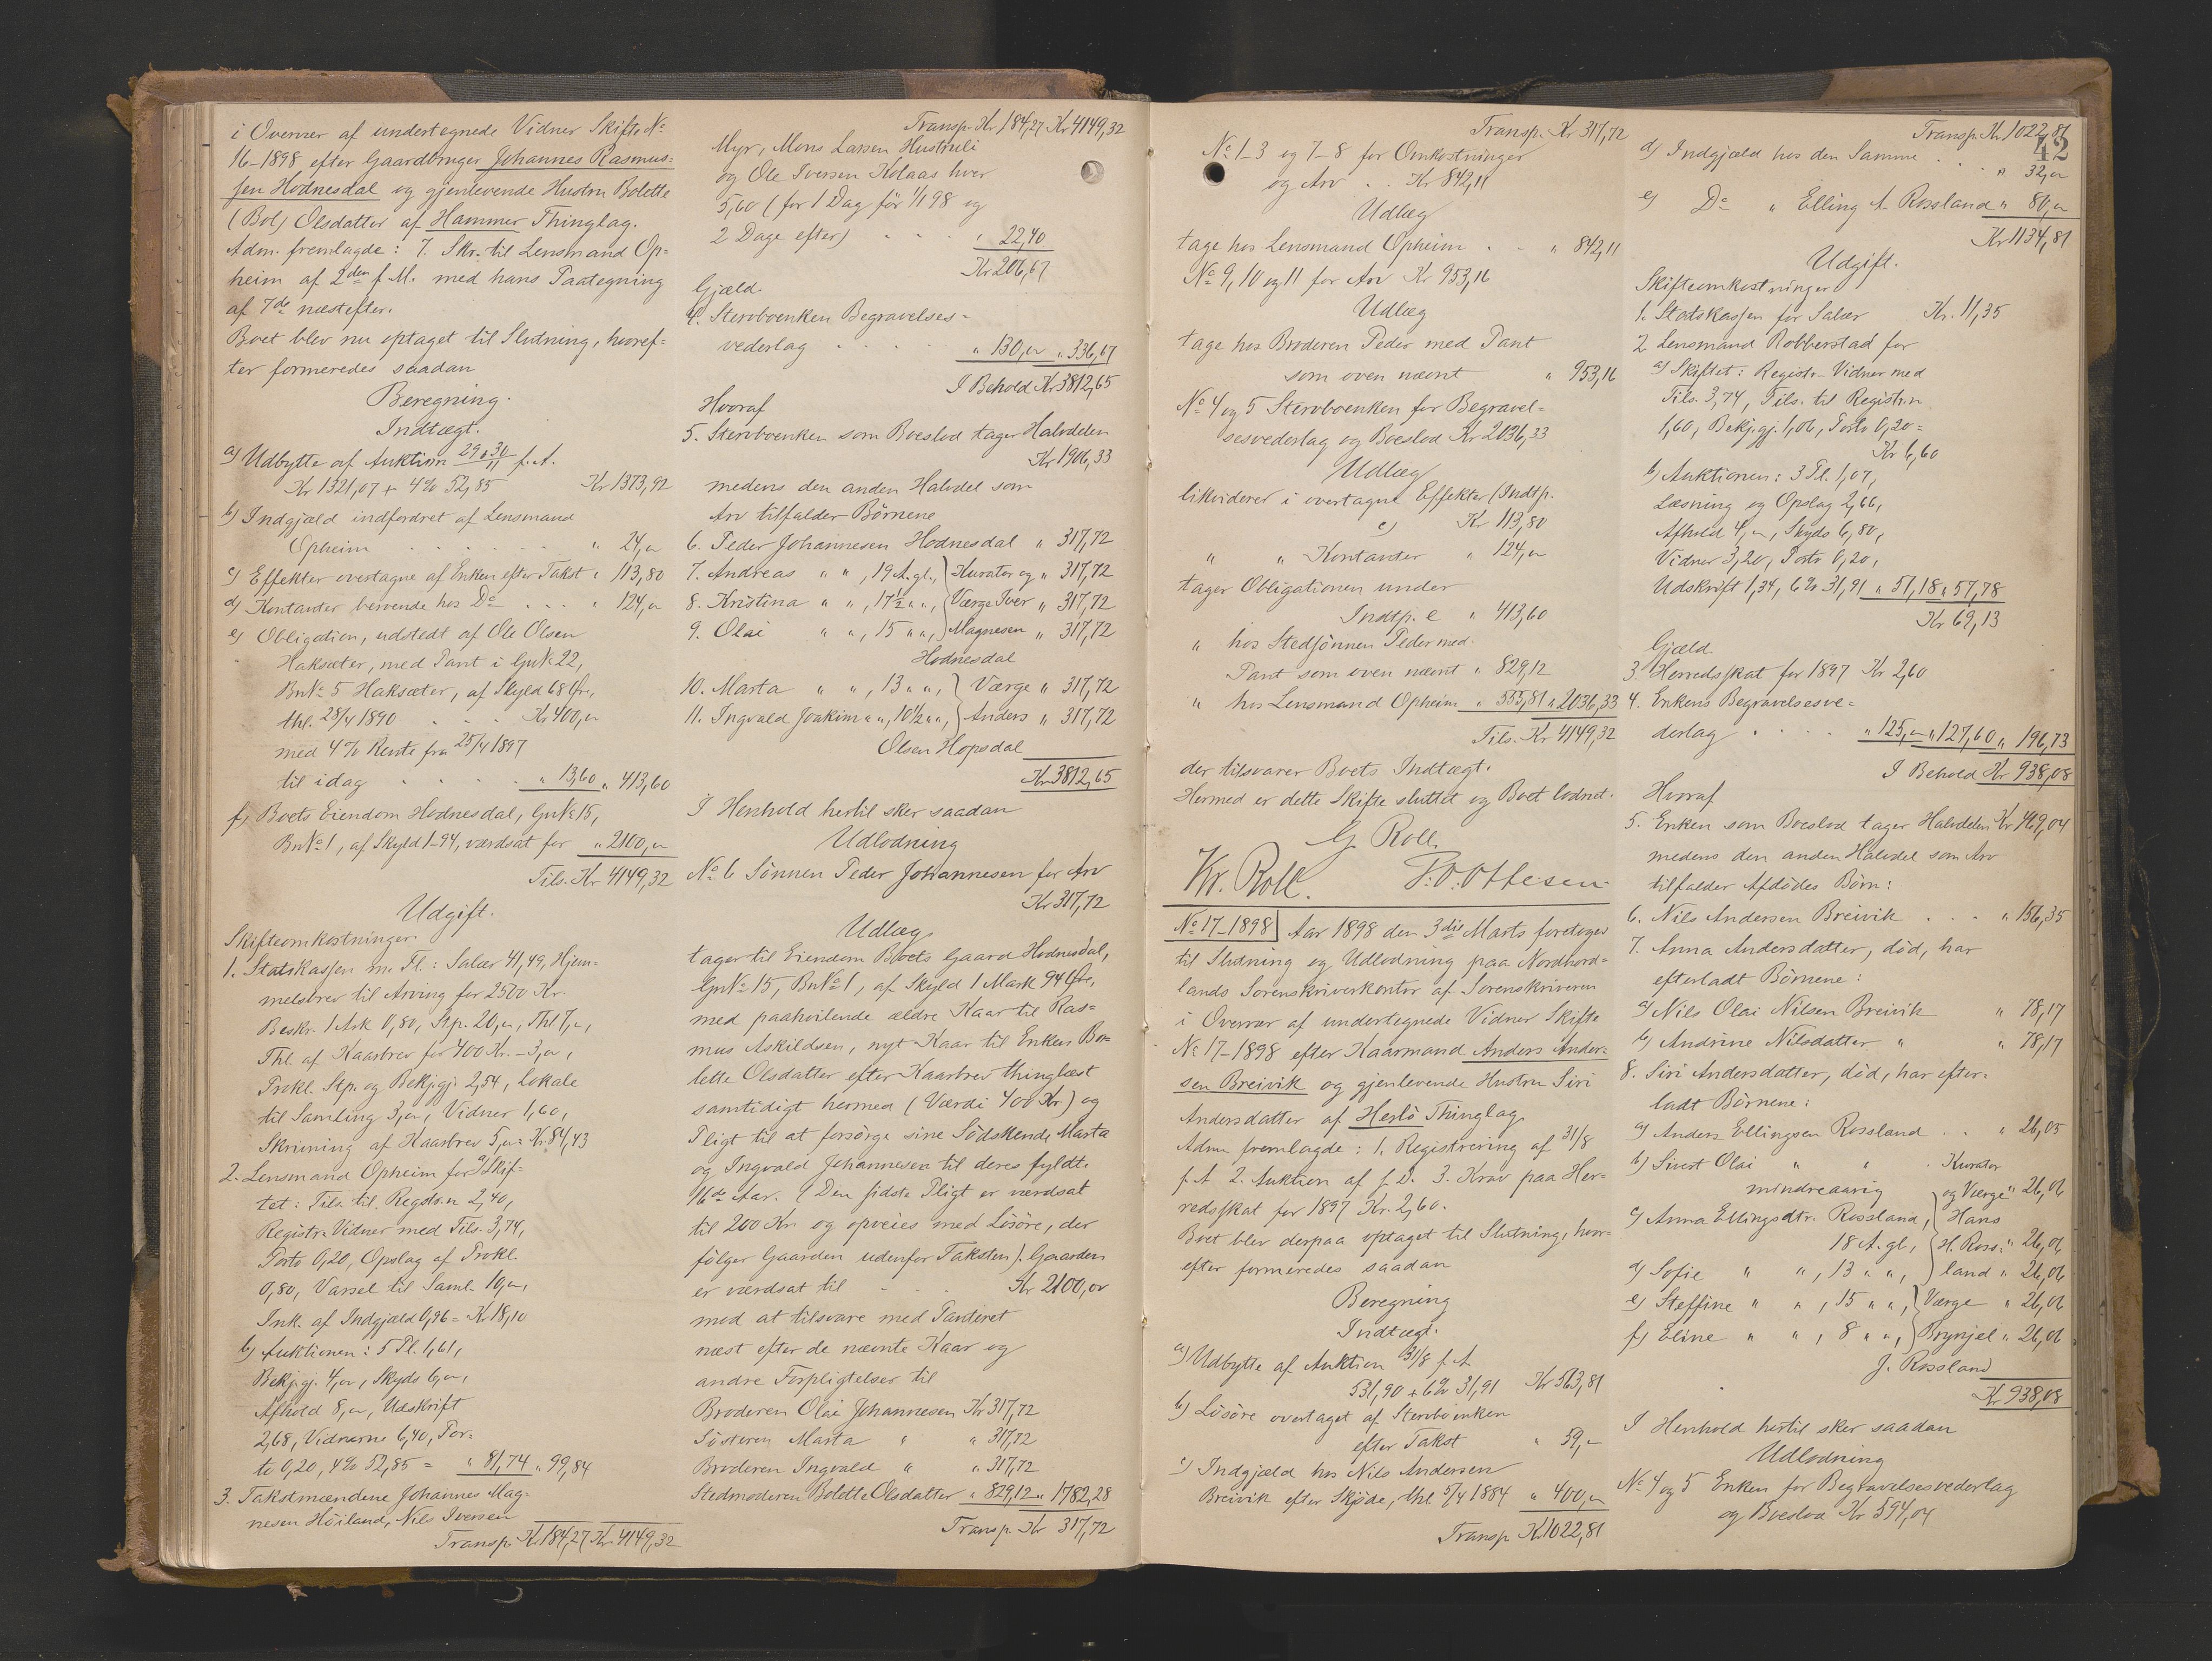 i Overvær af undertegnede Vidner Skifte No
16-1898 efter Gaardbruger Johannes Rasmus=
sen Hodnesdal og gjenlevende Hustru Bolette
(Bol) Olsdatter af Hammer Thinglag.
Adm. fremlagde: 7. Skr. til Lensmand Op=
heim af 2den f. M. med hans Paategning
af 7de næstefter.
Boet blev nu optaget til Slutning, hvoref=
ter formeredes saadan
Beregning.
Indtægt.
a) Udbytte af Auktion 29 & 30/11 f. A.
Kr 1321,07 + 4% 52,85 Kr 1373,92
b) Indgjæld indfordret af Lensmand
Opheim . . . . . . " 24,00
c) Effekter overtagne af Enken efter Takst " 113,80
d) Kontanter beroende hos Do . . . " 124,00
e) Obligation, udstedt af Ole Olsen
Haksæter, med Pant i GnNo 22,
BnNo 5 Haksæter, af Skyld 68 Øre,
thl. 28/4 1890 . . . Kr 400,00
med 4% Rente fra 25/4 1897
til idag . . . . . " 13,60 " 413,60
f) Boets Eiendom Hodnesdal, GnNo 15,
BnNo 1, af Skyld 1-94, værdsat for " 2100,00
Tils. Kr 4149,32
Udgift.
Skifteomkostninger.
1. Statskassen m. Fl.: Salær 41,49, Hjem=
melsbrev til Arving for 2500 Kr.
Beskr. 1 Ark 0,80, Stp. 20,00, Thl 7,00,
Thl. af Kaarbrev for 400 Kr. - 3,00,
Prokl. Stp. og Bekjgj. 2,54, Lokale
til Samling 3,00, Vidner 1,60,
Skrivning af Kaarbrev 5,00 = Kr. 84,43
2. Lensmand Opheim for a) Skif=
tet: Tils. til Registr.n 2,40,
Registr. Vidner med Tils. 3,74,
Porto 0,20, Opslag af Prokl.
0,80, Varsel til Saml. 10,00,
Ink. af Indgjæld 0,96 = Kr 18,10
b) Auktionen: 5 Pl. 1,61,
Bekjgj. 4,00, Skyds 6,00,
Afhold 8,00, Udskrift
2,68, Vidnerne 6,40, Por=
to 0,20, 4% 52,85 = " 81,74 " 99,84
3. Takstmændene Johannes Mag=
nesen Höiland, Nils Iversen
Transp. Kr 184,27 Kr 4149,32
Transp. Kr 184,27 Kr 4149,32
Myr, Mons Larsen Hustruli
og Ole Iversen Kolaas hver
5,60 (for 1 Dag för 1/1 98 og
2 Dage efter) . . . " 22,40
Kr 206,67
Gjæld.
4. Stervboenken Begravelses-
vederlag . . . . . " 130,00 " 336,67
I Behold Kr 3812,65
Hvoraf
5. Stervboenken som Boeslod tager Halvdelen
Kr 1906,33
medens den anden Halvdel som
Arv tilfalder Börnene
6. Peder Johannesen Hodnesdal " 317,72
7. Andreas " ", 19 A. gl., Kurator og " 317,72
8. Kristina " ", 17½ " ", Værge Iver " 317,72
9. Olai " ", 15 " ", Magnesen " 317,72
Hodnesdal
10. Marta " ", 13 " ", Værge " 317,72
11. Ingvald Joakim " ", 10½ " ", Anders " 317,72
Olsen Hopsdal
Kr 3812,65
I Henhold hertil sker saadan
Udlodning
No 6 Sönnen Peder Johannesen for Arv
Kr 317,72
Udlæg
tager til Eiendom Boets Gaard Hodnesdal,
GnNo 15, BnNo 1, af Skyld 1 Mark 94 Øre,
med paahvilende ældre Kaar til Ras=
mus Askildsen, nyt Kaar til Enken Bo=
lette Olsdatter efter Kaarbrev thinglæst
samtidigt hermed (Værdi 400 Kr) og
Pligt til at forsörge sine Södskende Marta
og Ingvald Johannesen til deres fyldte
16de Aar. (Den sidste Pligt er værdsat
til 200 Kr. og opveies med Lösöre, der
fölger Gaarden udenfor Taksten). Gaarden
er værdsat til . . . Kr 2100,00
mod at tilsvare med Panteret
næst efter de nævnte Kaar og
andre Forpligtelser til
Broderen Olai Johannesen Kr 317,72
Sösteren Marta " " 317,72
Broderen Ingvald " " 317,72
Stedmoderen Bolette Olsdatter " 829,12 " 1782,28
Transp. Kr 317,72
Transp. Kr 317,72
No 1-3 og 7-8 for Omkostninger
og Arv . . Kr 842,11
Udlæg
tage hos Lensmand Opheim . . " 842,11
No 9, 10 og 11 for Arv Kr 953,16
Udlæg
tage hos Broderen Peder med Pant
som oven nævnt " 953,16
No 4 og 5 Stervboenken for Begravel=
sesvederlag og Boeslod Kr 2036,33
Udlæg
likviderer i overtagne Effekter (Indtp.
c) Kr 113,80
" " Kontanter " 124,00
tager Obligationen under
Indtp. e " 413,60
" hos Stedsönnen Peder med
Pant som oven nævnt " 829,12
" hos Lensmand Opheim " 555,81 " 2036,33
Tils. Kr 4149,32
der tilsvarer Boets Indtægt.
Hermed er dette Skifte sluttet og Boet lodnet.
G. Roll.
Kr. Roll. P. O. Ottesen.
No 17-1898 Aar 1898 den 3die Marts foretoges
til Slutning og Udlodning paa Nordhord=
lands Sorenskriverkontor af Sorenskriveren
i Overvær af undertegnede Vidner Skifte
No 17-1898 efter Kaarmand Anders Ander=
sen Breivik og gjenlevende Hustru Siri
Andersdatter af Herlö Thinglag.
Adm. fremlagde: 1. Registrering af 31/8
f. A. 2. Auktion af s. D. 3. Krav paa Her=
redsskat for 1897 Kr. 2,60.
Boet blev derpaa optaget til Slutning, hvor=
efter formeredes saadan
Beregning
Indtægt.
a) Udbytte af Auktion 31/8 f. A
531,90 + 6% 31,91 Kr 563,81
b) Lösöre overtaget af Stervboenken
efter Takst " 59,00
c) Indgjæld hos Nils Andersen
Breivik efter Skjöde, thl 5/4 1884 " 400,00
Transp Kr 1022,81
Transp. Kr 1022,81
42
d) Indgjæld hos den Samme . . " 32,00
e) Do " Elling A. Rossland " 80,00
Kr 1134,81
Udgift.
Skifteomkostninger
1. Statskassen for Salær Kr. 11,35
2 Lensmand Robberstad for
a) Skiftet: Registr. Vidner med
Tils. 3,74, Tils. til Registr.n
1,60, Bekjgj. 1,06, Porto 0,20 =
Kr 6,60
b) Auktionen: 3 Pl. 1,07,
Læsning og Opslag 2,66,
Afhold 4,00, Skyds 6,80,
Vidner 3,20, Porto 0,20,
Udskrift 1,34, 6% 31,91 " 51,18 " 57,78
Kr 69,13
Gjæld.
3. Herredsskat for 1897 Kr 2,60
4. Enkens Begravelsesve=
derlag . . . . " 125,00 " 127,60 " 196,73
I Behold Kr 938,08
Hvoraf
5. Enken som Boeslod tager Halvdelen Kr 469,04
medens den anden Halvdel som Arv
tilfalder Afdödes Börn:
6. Nils Andersen Breivik . . . " 156,35
7. Anna Andersdatter, död, har
efterladt Börnene:
a) Nils Olai Nilsen Breivik " 78,17
b) Andrine Nilsdatter " " 78,17
8. Siri Andersdatter, död, har efter=
ladt Börnene:
a) Anders Ellingsen Rossland . . " 26,05
b) Sivert Olai " " . Kurator
mindreaarig og Værge " 26,06
c) Anna Ellingsdtr. Rossland, Hans
18 A. gl., H. Ross= " 26,06
d) Sofie " ", 13 " ", land " 26,06
e) Steffine " ", 15 " ", Værge " 26,06
f) Eline " ", 8 " ", Brynjel " 26,06
J. Rossland
Kr 938,08
I Henhold hertil sker saadan
Udlodning
No 4 og 5 Enken for Begravelsesvederlag
og Boeslod Kr 594,04